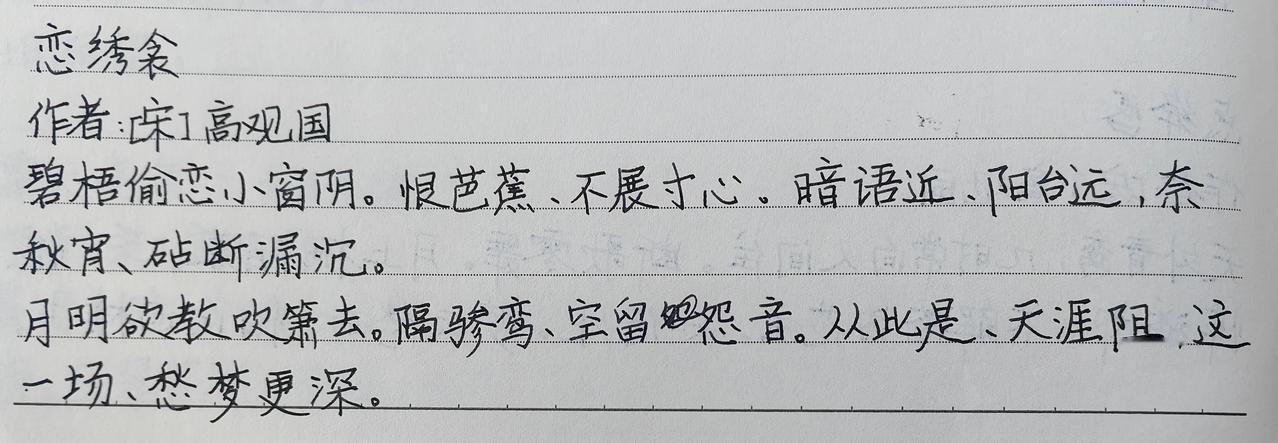 恋绣衾
作者:[宋]高观国
碧梧偷恋小窗阴。恨芭蕉、不展寸心。暗语近、阳台远,奈
秋宵、砧断漏沉。
月明欲教吹箫去。隔骖鸾、空留怨音。从此是、天涯阻,这
一场、愁梦更深。